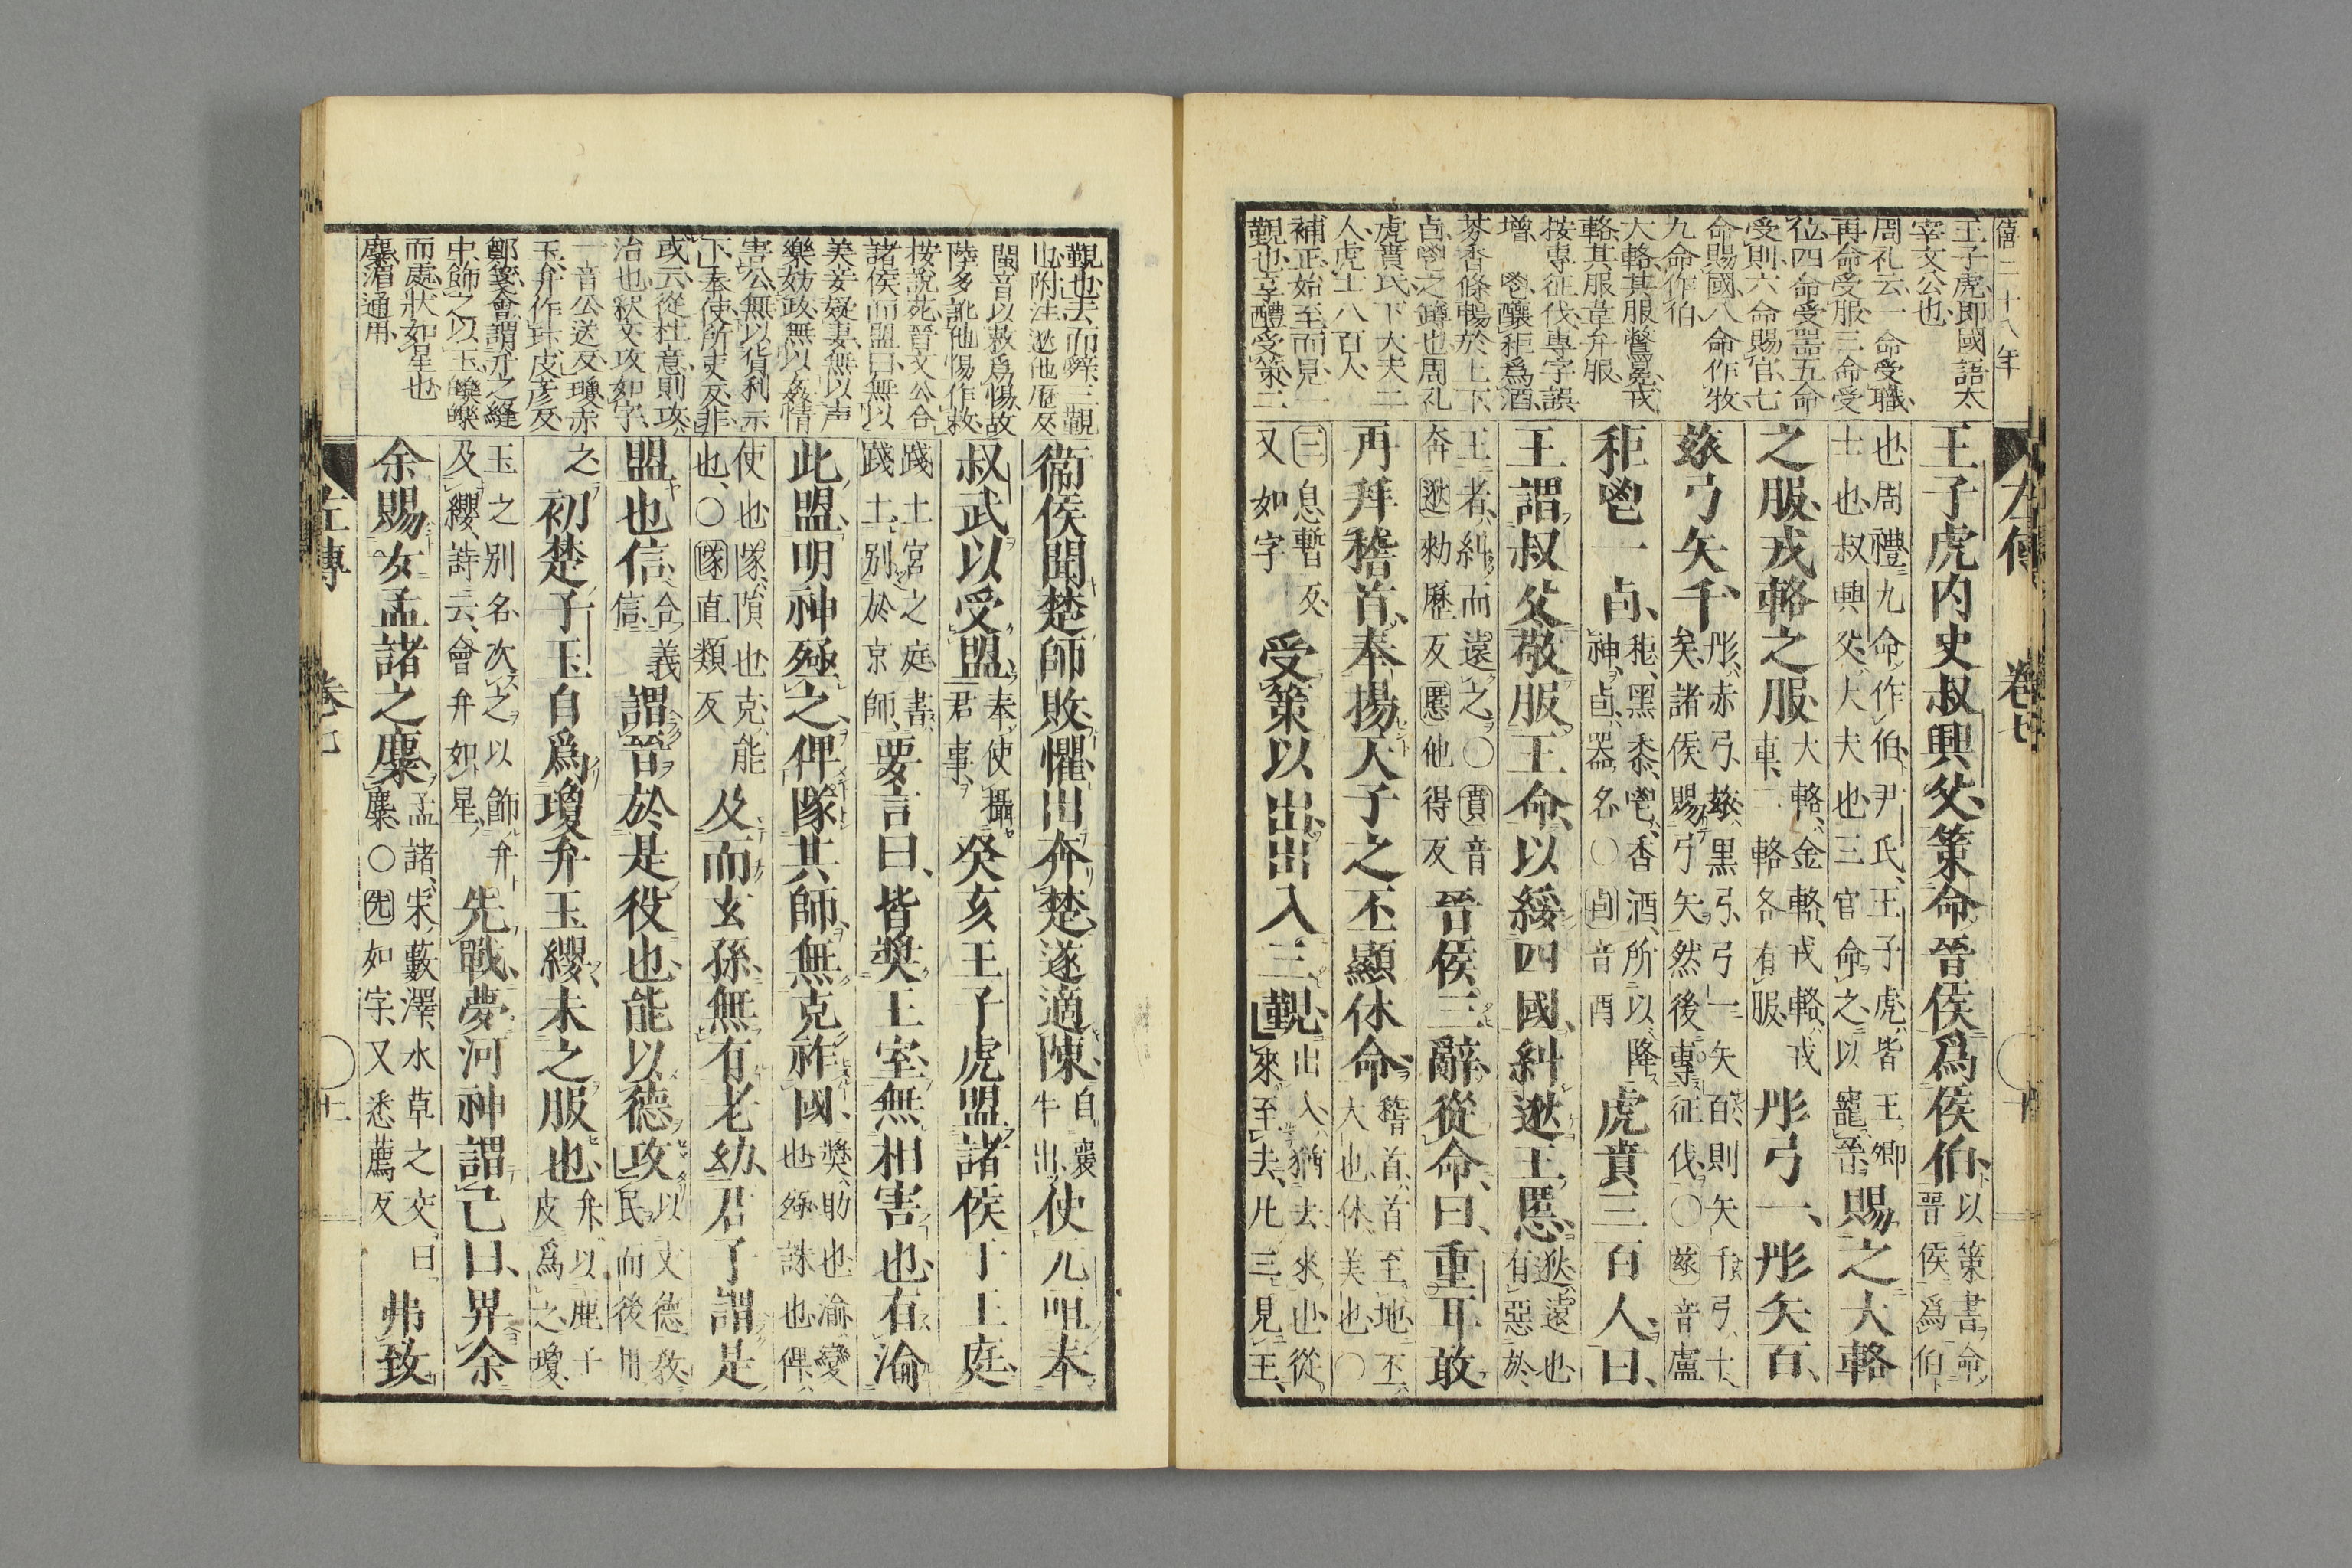 僖二十八年
王子虎即國語太
宰文公也
周礼云一命受職
再命受服三命受
位四命受器五命
受則六命賜官七
命賜國八命作牧
九命作伯
大輅其服鷩冕戎
輅其服韋弁服
按專征伐專字誤
増 鬯釀秬爲酒
芬香條暢於上下
卣鬯之罇也周礼
虎賁氏下大夫二
人虎士八百人
補正始至而見一
覲也享醴受策二
左傳 卷七 十
王子虎内史叔興父策命晉侯爲侯伯以策書命
晉侯爲伯
也周禮九命作伯尹氏王子虎皆王卿
士也叔興父大夫也三官命之以寵晉賜之大輅
之服戎輅之服大輅金輅戎輅戎
車二輅各有服彤弓一彤矢百
玈弓矢千彤赤弓玈黑弓弓一矢百則矢千弓十
矣諸侯賜弓矢然後專征伐○玈音盧
秬鬯一卣秬黑黍鬯香酒所以降
神卣器名○卣音酉虎賁三百人曰
王謂叔父敬服王命以綏四國糾逖王慝逖遠也
有惡於
王者糾而遠之○賁音
奔逖勑歷反慝他得反晉侯三辭從命曰重耳敢
再拜稽首奉揚天子之丕顯休命稽首首至地丕
大也休美也○
三息暫反
又如字受策以出出入三覲出入猶去來也從
來至去凡三見王
覲也去而辤三觀
也附注逖他歷反
閩音以救爲惕故
陸多訛他惕作救
按說苑晉文公合
諸侯而盟曰無以
美妾疑妻無以声
樂妨政無以姦情
害公無以貨利示
下奉使所吏反非
或云從杜意則攻
治也釈文攻如字
一音公送反瓊赤
玉弁作玤皮彦反
鄭箋會謂弁之縫
中飾之以玉皪皪
而處狀如星也
麋湄通用
衞侯聞楚師敗懼出奔楚遂適陳自襄
牛出使元咺奉
叔武以受盟奉使攝
君事癸亥王子虎盟諸侯于王庭
踐土宮之庭書
踐土别於京師要言曰皆奬王室無相害也有渝
此盟明神殛之俾隊其師無克祚國奬助也渝變
也殛誅也俾
使也隊隕也克能
也○隊直類反及而玄孫無有老幼君子謂是
盟也信合義
信謂晉於是役也能以德攻以文德教
民而後用
之初楚子玉自爲瓊弁玉纓未之服也弁以鹿子
皮爲之瓊
玉之别名次之以飾弁
及纓詩云會弁如星先戰夢河神謂己曰畀余
余賜女孟諸之麋孟諸宋藪澤水草之交曰
麋○先如字又悉薦反弗致
左傳 卷七 十一